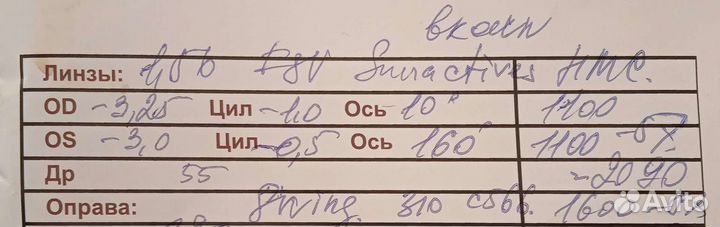 Линзы: 1,56 FSV Sunactives HMC.
OD -3,25 Цил -1,0 Ось 10° 1100
OS -3,0 Цил -0,5 Ось 160° 1100 -5%
Др 55 =2090
Оправа: 310 c566. 1600
Avito